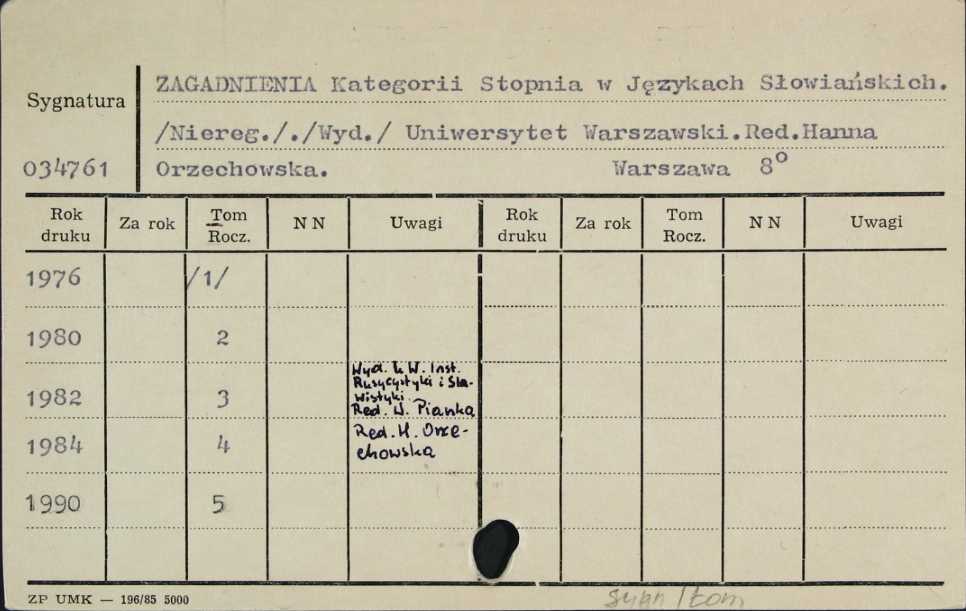 ZAGADNIENIA Kategorii Stopnia w Językach Słowiańskich.
Sygnatura
/Niereg./. /Wyd./ Uniwersytet Warszawski.Red.Hanna
034761 Orzechowska. Warszawa 8°
Rok druku Za rok Tom Rocz. N N Uwagi Rok druku Za rok Tom Rocz. N N Uwagi
1976 /1/
1980 2
Wyd. U.W. Inst.
Rusycystyki i Sla-
wistyki.
1982 3 Red. W. Pianka
Red. H. Orze-
1984 4 chowska
1990 5
ZP UMK — 196/85 5000